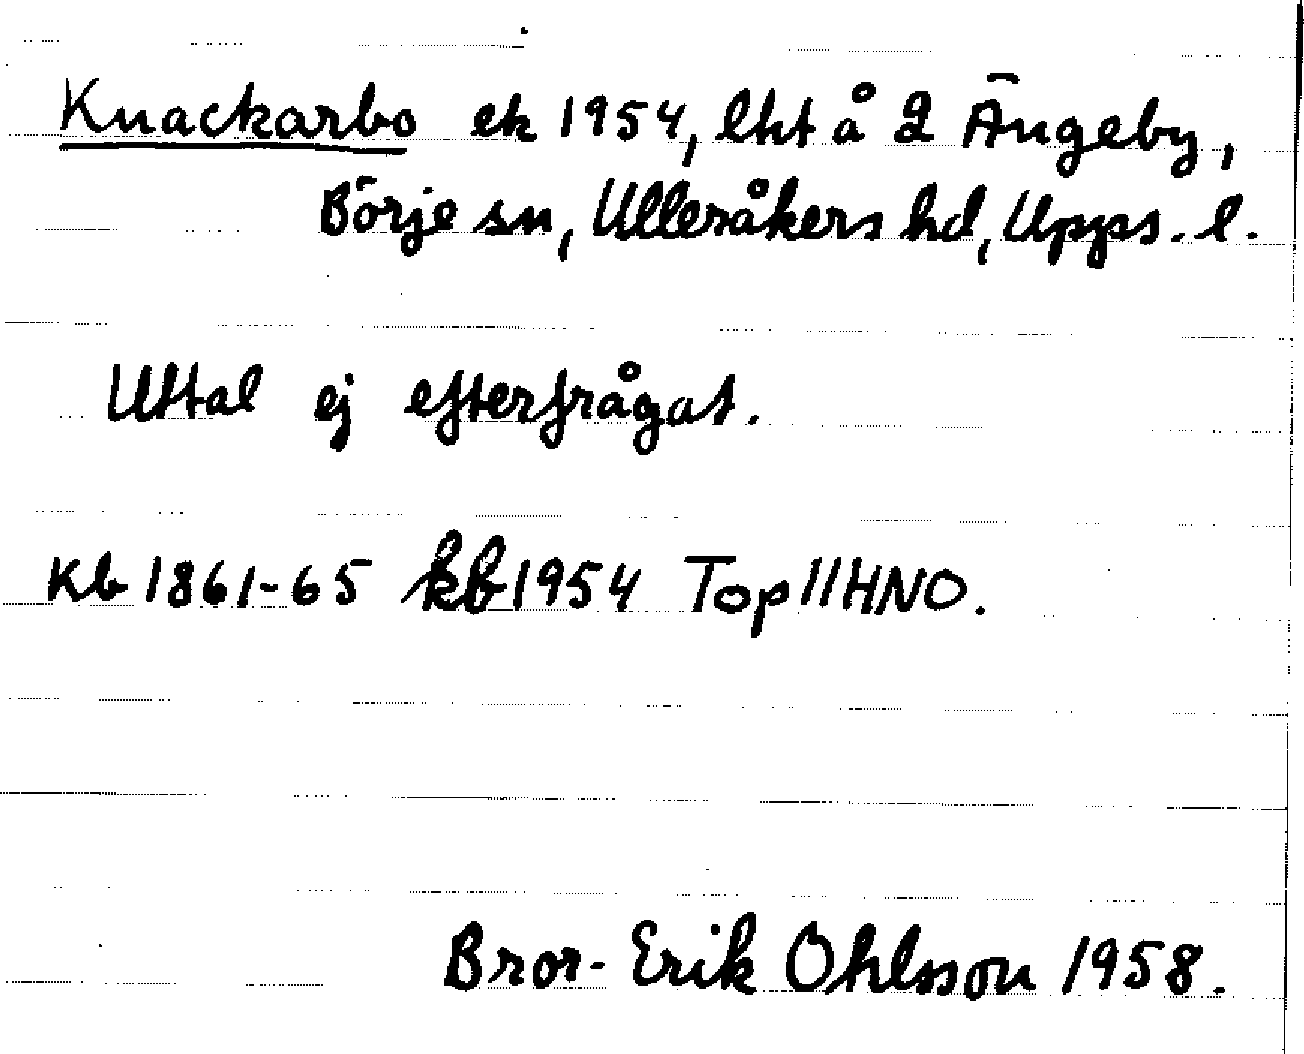 Knackarbo ek 1954, lht å 2 Ängeby,
Börje sn, Ulleråkers hd, Upps. l.
Uttal ej efterfrågat.
Kb 1861-65 kb 1954 Top 11HNO.
Bror-Erik Ohlsson 1958.